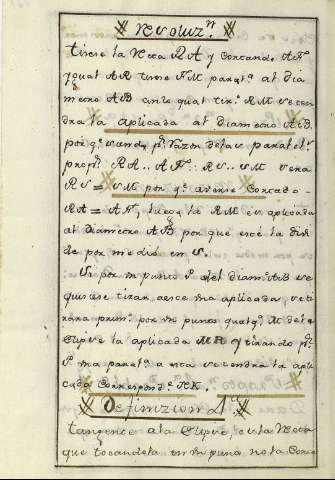 Resoluz.n
tirese la Recta RA y cortando AF
ygual AR tirese FM paral.a al dia
metro AB con la qual tir. RM se ten
dra la aplicada al diametro AB
por q.e siendo p.r razon de las paralel.s
propor. RA .. AF :: RS .. SM sera
RS = SM por q.e aviendo Cortado
RA = AF, luego la RM es aplicada
al diametro AB por que este la divi
de por medio en S.
Si por un punto P del diam. AB se
quisiese tirar aesta una aplicada se ti
rara prim. por un punto qualq. M dela
Curve la aplicada MR y tirando p.r
P una paral.a a esta se tendra la apli
cada Correspond.te KK.
Definizion 2.a
tangente ala Curve, es la Recta
que tocandola en un punto, no la Corta